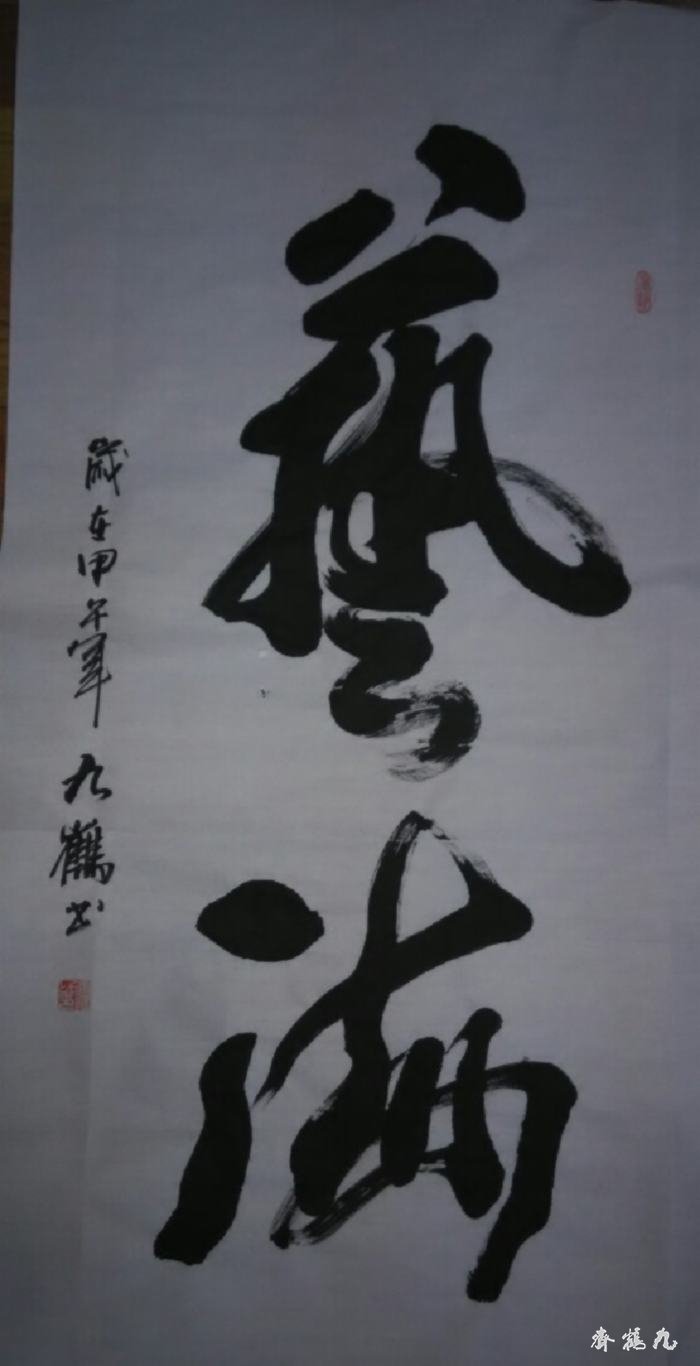 藝海
歲在甲午年 九鶴书
九鶴齊